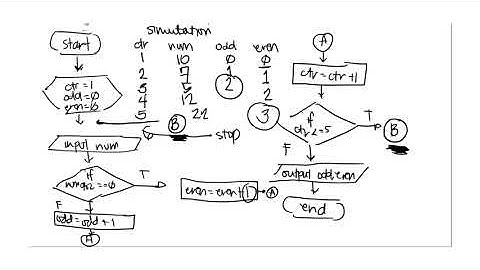 simulation
start
ctr num odd even
1 10 0 0
2 7 1 1
3 5 2 2
4 12 3
5 22
6 stop
ctr = 1
odd = 0
even = 0
B
input num
if
num%2 == 0
T
F
even = even + 1
A
odd = odd + 1
A
A
ctr = ctr + 1
if
ctr <= 5
T
B
F
output odd, even
end